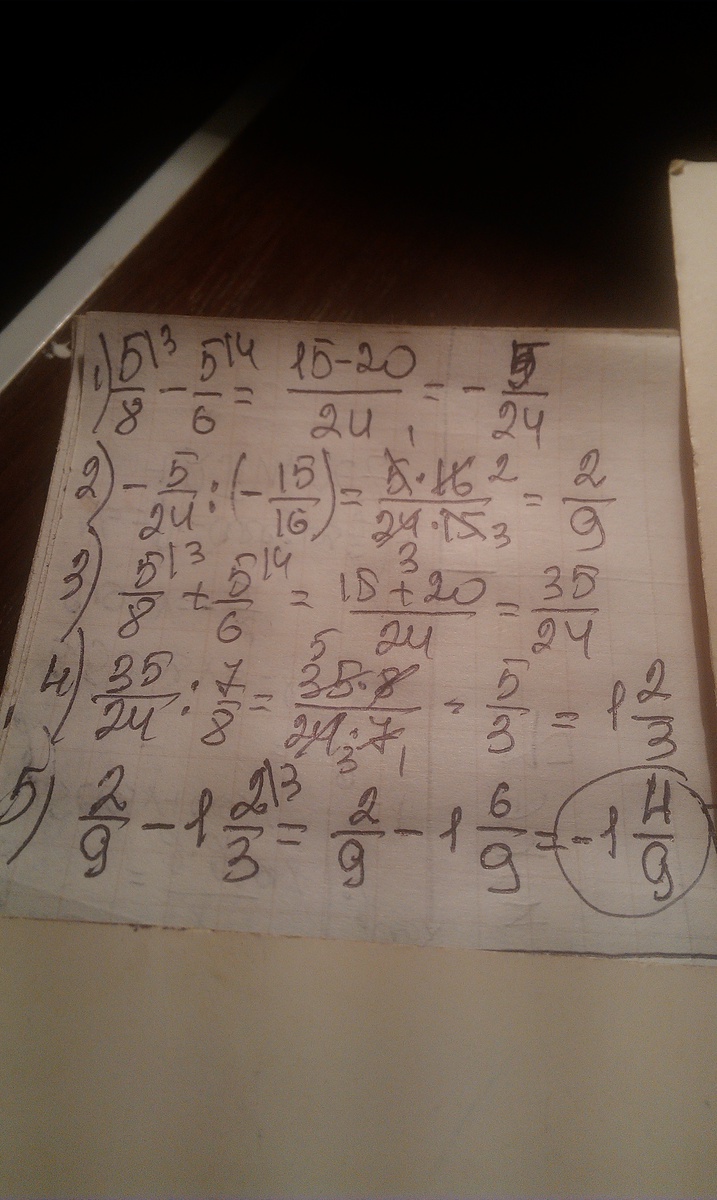 1) 5/8 |3 − 5/6 |4 = (15−20)/24 = − 5/24
2) − 5/24 : (− 15/16) = (5·16)/(24·15) 1 2 3 3 = 2/9
3) 5/8 |3 + 5/6 |4 = (15+20)/24 = 35/24
4) 35/24 : 7/8 = (35·8)/(24·7) 5 3 1 = 5/3 = 1 2/3
5) 2/9 − 1 2/3 |3 = 2/9 − 1 6/9 = −1 4/9